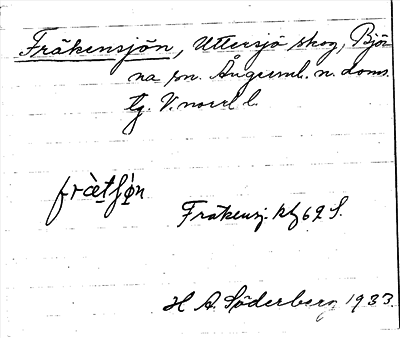 Fräkensjön, Uttersjö skog, Björ
na sn. Ångerml. n. doms.
tg. V.norrl l.
frætʃøn
Fräkensj. ktbl 62 S.
H A Söderberg 1933.